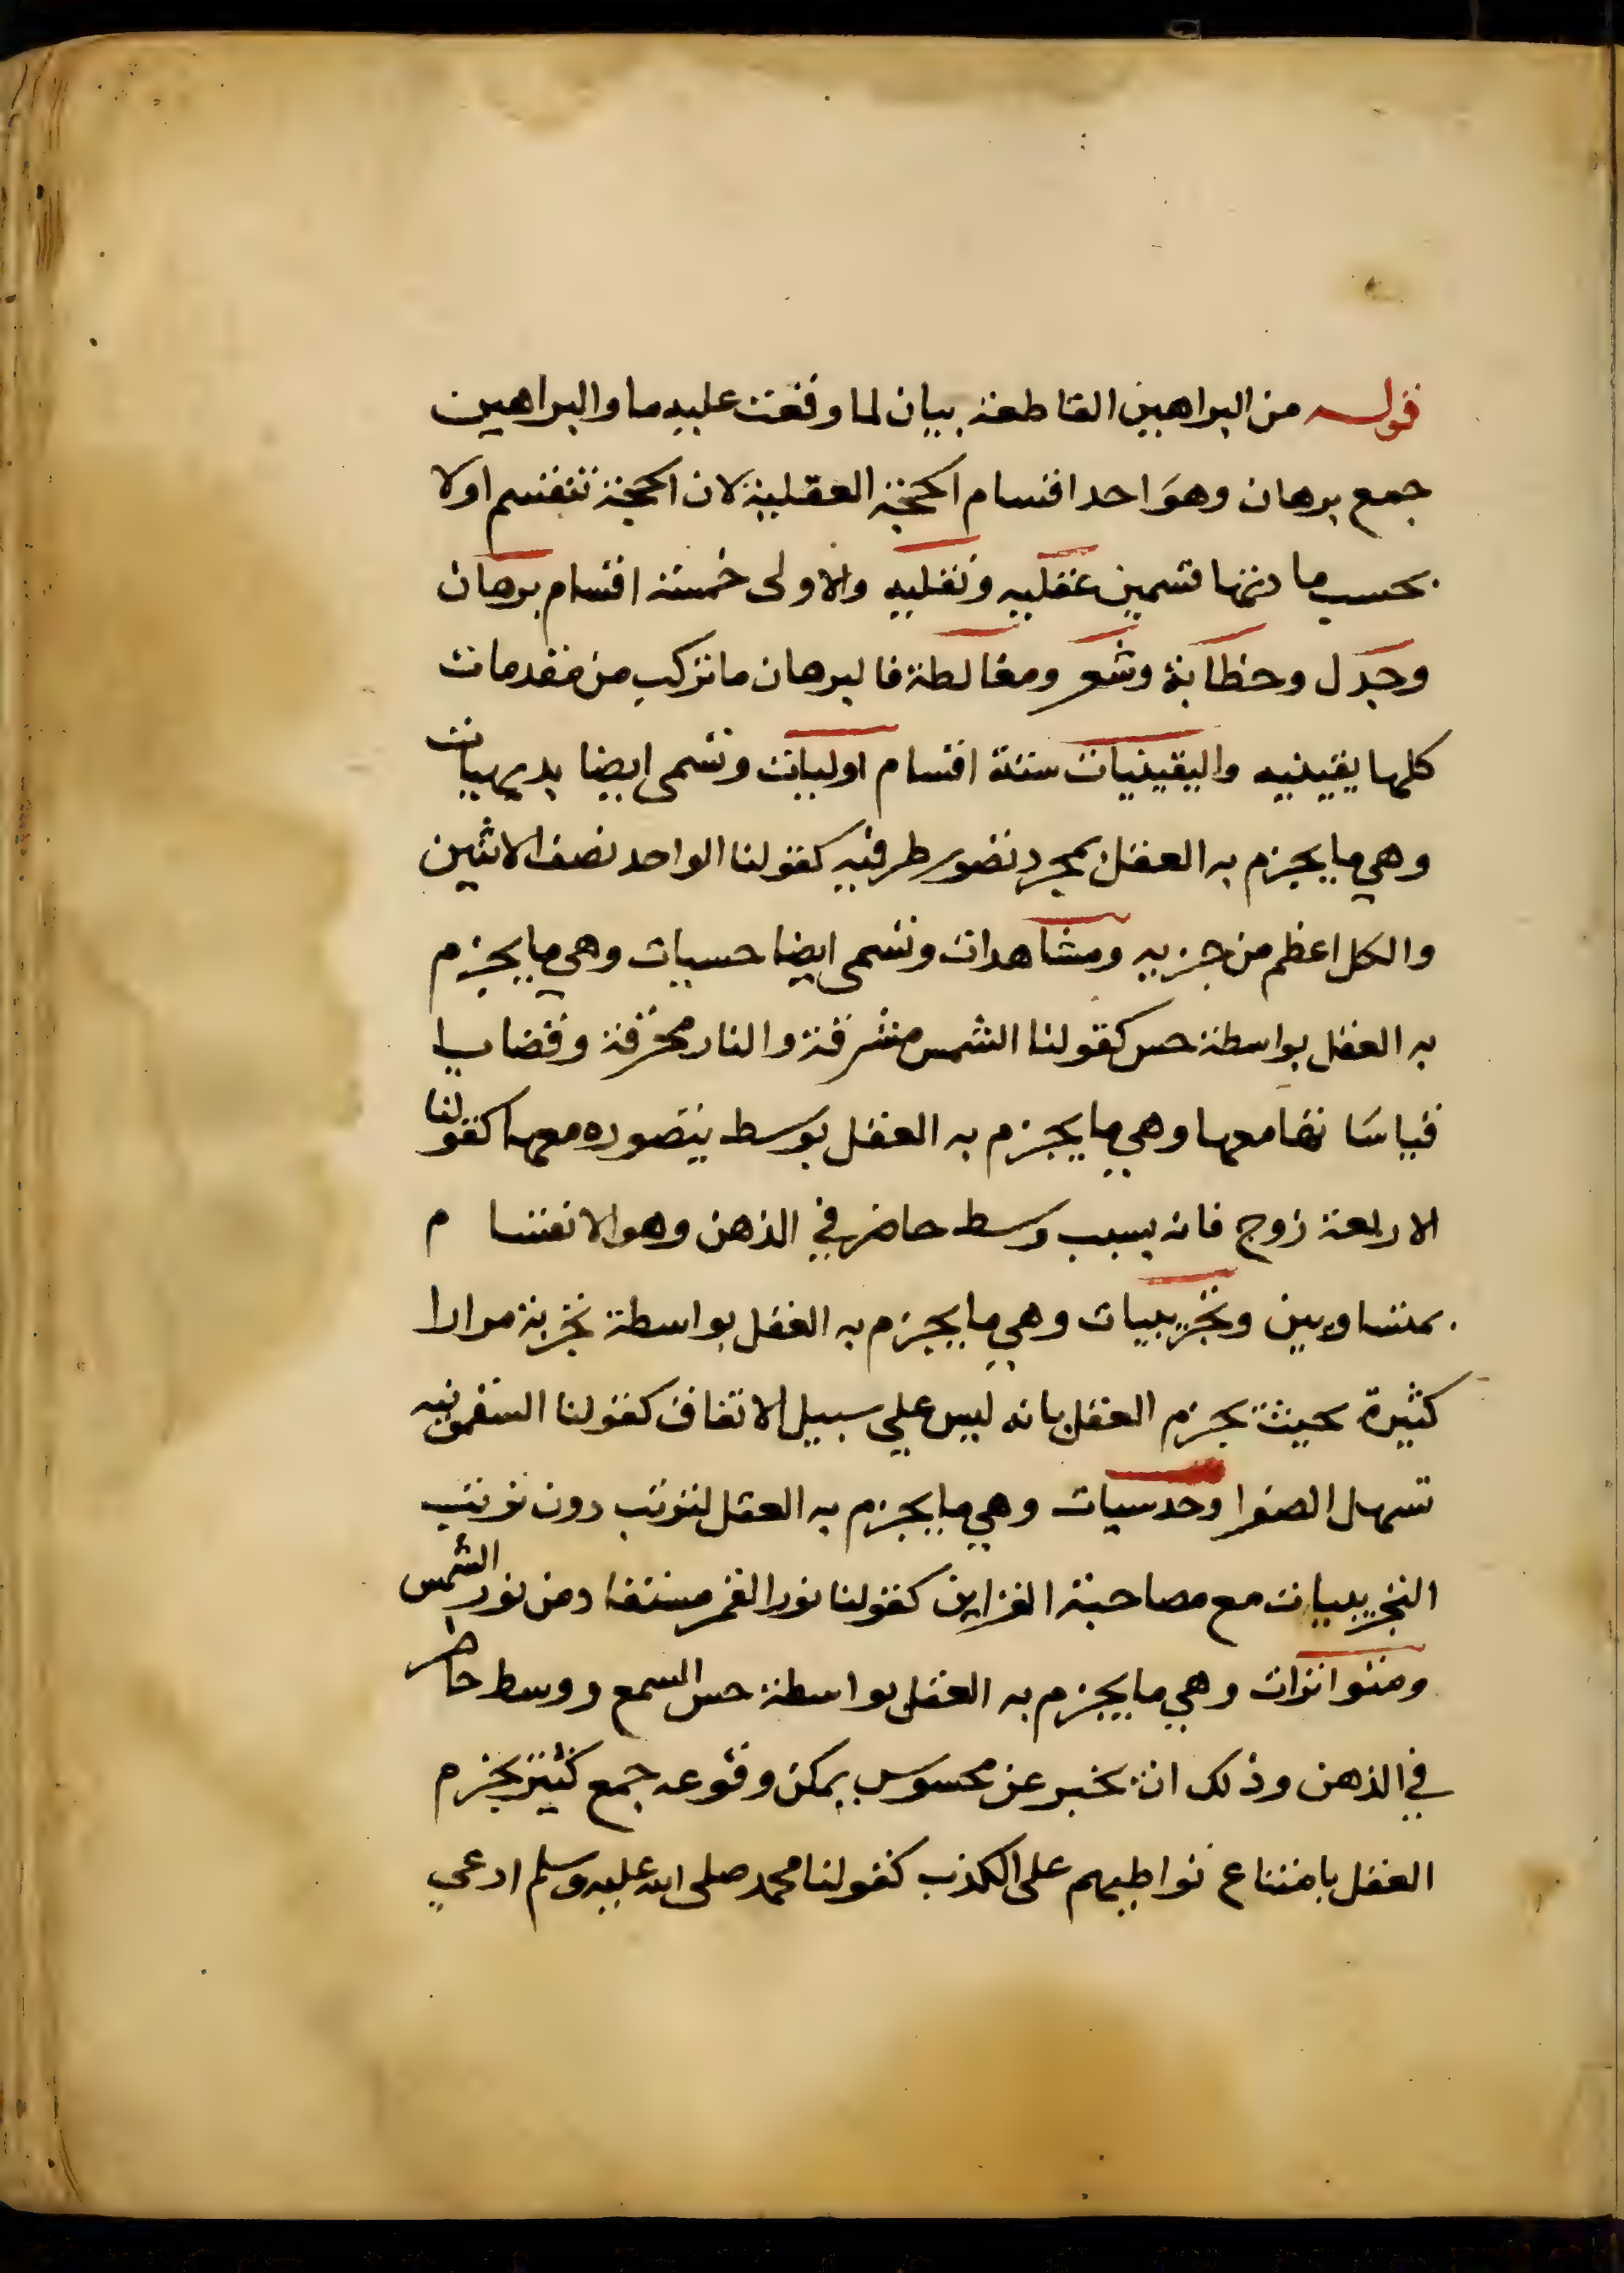 قوله من البراهين القاطعة بيان لما وقعت عليه ما والبراهين
جمع برهان وهو احد اقسام الحجة العقلية لان الحجة تنقسم اولا
بحسب مادتها قسمين عقليه ونقليه والاولى خمسة اقسام برهان
وجدل وخطابة وشعر ومغالطة فالبرهان ما تركب من مقدمات
كلها يقينيه واليقينيات ستة اقسام اوليات وتسمى ايضا بديهيات
وهي ما يجزم به العقل بمجرد تصور طرفيه كقولنا الواحد نصف الاثنين
والكل اعظم من جزيه ومشاهدات وتسمى ايضا حسيات وهي ما يجزم
به العقل بواسطة حس كقولنا الشمس مشرقة والنار محرقة وقضايا
قياساتها معها وهي ما يجزم به العقل بوسط يتصوره معها كقولنا
الاربعة زوج فانه بسبب وسط حاضر في الذهن وهو الانقسام
بمتساويين وتجريبيات وهي ما يجزم به العقل بواسطة تجربة مرارا
كثيرة بحيث يجزم العقل بانه ليس علي سبيل الاتفاق كقولنا السقمونيه
تسهل الصفرا وحدسيات وهي ما يجزم به العقل لترتب دون ترتب
التجريبيات مع مصاحبة القراين كقولنا نور القمر مستفاد من نور الشمس
ومتواترات وهي ما يجزم به العقل بواسطة حس السمع ووسط حاضر
في الذهن وذلك ان يخبر عن محسوس يمكن وقوعه جمع كثير يجزم
العقل بامتناع تواطيهم على الكذب كقولنا محمد صلى الله عليه وسلم ادعي